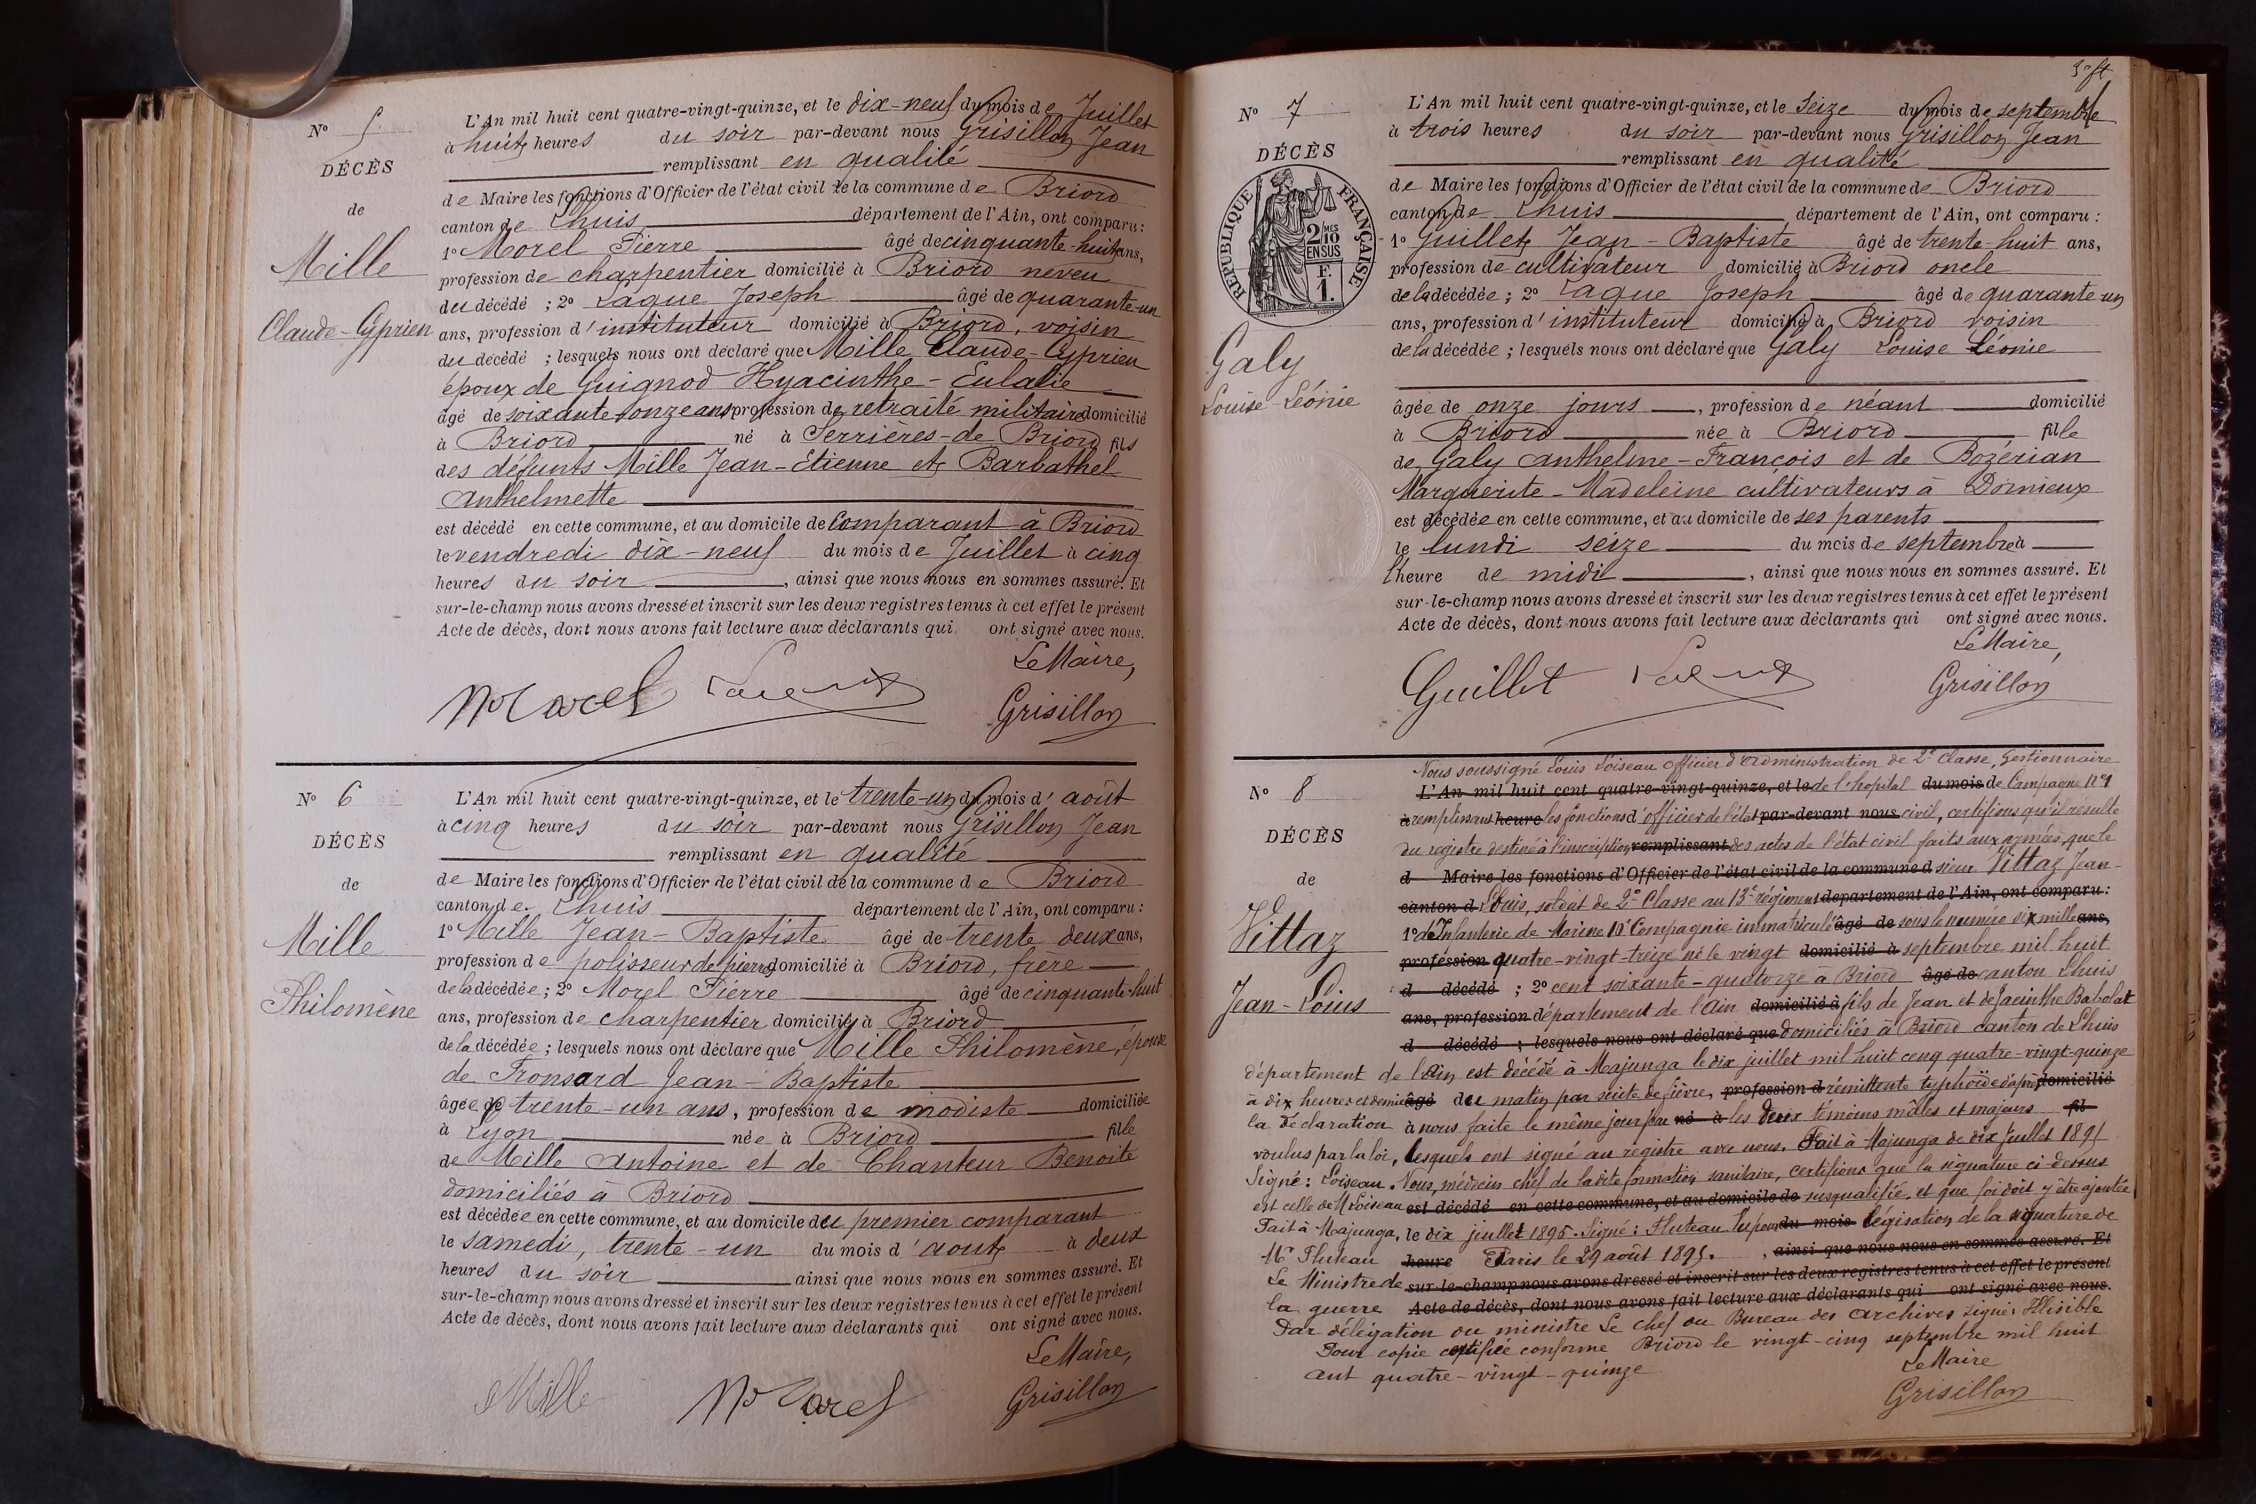 N° 5
DÉCÈS
de
Mille
Claude-Cyprien
L'An mil huit cent quatre-vingt-quinze, et le dix-neuf du mois de Juillet
à huit heures du soir par-devant nous Grisillon Jean
remplissant en qualité
de Maire les fonctions d'Officier de l'état civil de la commune de Briord
canton de Lhuis département de l'Ain, ont comparu :
1° Morel Pierre âgé de cinquante-huit ans,
profession de charpentier domicilié à Briord neveu
du décédé ; 2° Laque Joseph âgé de quarante-un
ans, profession d'instituteur domicilié à Briord, voisin
du décédé ; lesquels nous ont déclaré que Mille Claude-Cyprien
époux de Guignod Hyacinthe-Eulalie
âgé de soixante-onze ans profession de retraité militaire domicilié
à Briord né à Serrières-de-Briord fils
des défunts Mille Jean-Etienne et Barbathel
Anthelmette
est décédé en cette commune, et au domicile de comparant à Briord
le vendredi dix-neuf du mois de Juillet à cinq
heures du soir, ainsi que nous nous en sommes assuré. Et
sur-le-champ nous avons dressé et inscrit sur les deux registres tenus à cet effet le présent
Acte de décès, dont nous avons fait lecture aux déclarants qui ont signé avec nous.
Le Maire,
Morel Grisillon
N° 6
DÉCÈS
de
Mille
Philomène
L'An mil huit cent quatre-vingt-quinze, et le trente-un du mois d'août
à cinq heures du soir par-devant nous Grisillon Jean
remplissant en qualité
de Maire les fonctions d'Officier de l'état civil de la commune de Briord
canton de Lhuis département de l'Ain, ont comparu :
1° Mille Jean-Baptiste âgé de trente deux ans,
profession de polisseur de pierre domicilié à Briord, frère
de la décédée ; 2° Morel Pierre âgé de cinquante-huit
ans, profession de charpentier domicilié à Briord
de la décédée ; lesquels nous ont déclaré que Mille Philomène, épouse
de Fronsard Jean-Baptiste
âgée de trente-un ans, profession de modiste domiciliée
à Lyon née à Briord fille
de Mille Antoine et de Chanteur Benoite
domiciliés à Briord
est décédée en cette commune, et au domicile du premier comparant
le samedi, trente-un du mois d'août à deux
heures du soir ainsi que nous nous en sommes assuré. Et
sur-le-champ nous avons dressé et inscrit sur les deux registres tenus à cet effet le présent
Acte de décès, dont nous avons fait lecture aux déclarants qui ont signé avec nous.
Le Maire,
Mille Morel Grisillon
N° 7
DÉCÈS
RÉPUBLIQUE FRANÇAISE
2/10 MES
EN SUS
F.
1.
Galy
Louise Léonie
L'An mil huit cent quatre-vingt-quinze, et le seize du mois de septembre
à trois heures du soir par-devant nous Grisillon Jean
remplissant en qualité
de Maire les fonctions d'Officier de l'état civil de la commune de Briord
canton de Lhuis département de l'Ain, ont comparu :
1° Guillet Jean-Baptiste âgé de trente-huit ans,
profession de cultivateur domicilié à Briord oncle
de la décédée ; 2° Laque Joseph âgé de quarante-un
ans, profession d'instituteur domicilié à Briord voisin
de la décédée ; lesquels nous ont déclaré que Galy Louise Léonie
âgée de onze jours, profession de néant domicilié
à Briord née à Briord fille
de Galy Anthelme-François et de Bozérian
Marguerite-Madeleine cultivateurs à Dornieux
est décédée en cette commune, et au domicile de ses parents
le lundi seize du mois de septembre à
l'heure de midi, ainsi que nous nous en sommes assuré. Et
sur-le-champ nous avons dressé et inscrit sur les deux registres tenus à cet effet le présent
Acte de décès, dont nous avons fait lecture aux déclarants qui ont signé avec nous.
Le Maire,
Guillet Grisillon
N° 8
DÉCÈS
de
Vittaz
Jean-Louis
Nous soussigné Louis Loiseau officier d'administration de 2e Classe, Gestionnaire
L'An mil huit cent quatre-vingt-quinze, et le de l'hopital du mois de Campagne n°1
à remplissant heure les fonctions d'officier de l'état par-devant nous civil, certifions qu'il résulte
du registre destiné à l'inscription remplissant des actes de l'état civil faits aux armées, que le
d Maire les fonctions d'Officier de l'état civil de la commune d sieur Vittaz Jean-
canton d Louis, soldat de 2e Classe au 13e régiment département de l'Ain, ont comparu :
1° d'Infanterie de Marine 10e Compagnie immatriculé âgé de sous le numéro dix mille ans,
profession quatre-vingt-treize né le vingt domicilié à septembre mil huit
d décédé ; 2° cent soixante-quatorze à Briord âgé de canton Lhuis
ans, profession département de l'Ain domicilié à fils de Jean et de Jacinthe Babolat
d décédé ; lesquels nous ont déclaré que domiciliés à Briord canton de Lhuis
département de l'Ain est décédé à Majunga le dix juillet mil huit cent quatre-vingt-quinze
à dix heures et demie âgé du matin par suite de fièvre, profession d rémittente typhoïde d'après domicilié
la déclaration à nous faite le même jour par né à les deux témoins mâles et majeurs fil
voulus par la loi, lesquels ont signé au registre avec nous. Fait à Majunga de dix Juillet 1895
Signé : Loiseau. Nous, médecin chef de la dite formation sanitaire, certifions que la signature ci-dessus
est celle de M Loiseau est décédé en cette commune, et au domicile de susqualifié, et que foi doit y être ajoutée
Fait à Majunga, le dix juillet 1895. Signé : Fluteau du mois légisation de la signature de
Mr Fluteau heure Paris le 29 août 1895. , ainsi que nous nous en sommes assuré. Et
Le Ministre de sur-le-champ nous avons dressé et inscrit sur les deux registres tenus à cet effet le présent
la guerre Acte de décès, dont nous avons fait lecture aux déclarants qui ont signé avec nous.
Par délégation du ministre Le chef du Bureau des Archives signé : Illisible
Pour copie certifiée conforme Briord le vingt-cinq septembre mil huit
cent quatre-vingt-quinze
Le Maire
Grisillon